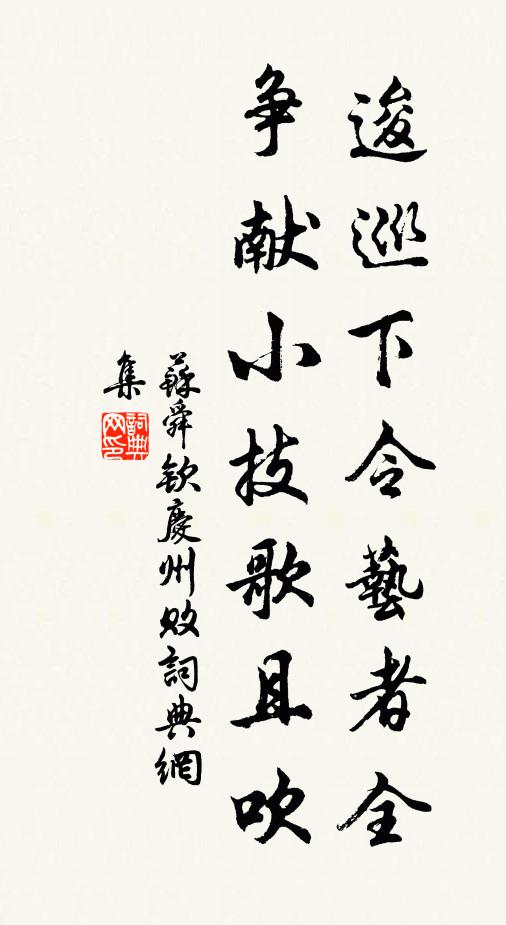 逡巡下令藝者全
争献小技歌且吹
蘇舜欽慶州敗詞典網
集
詞典
网印